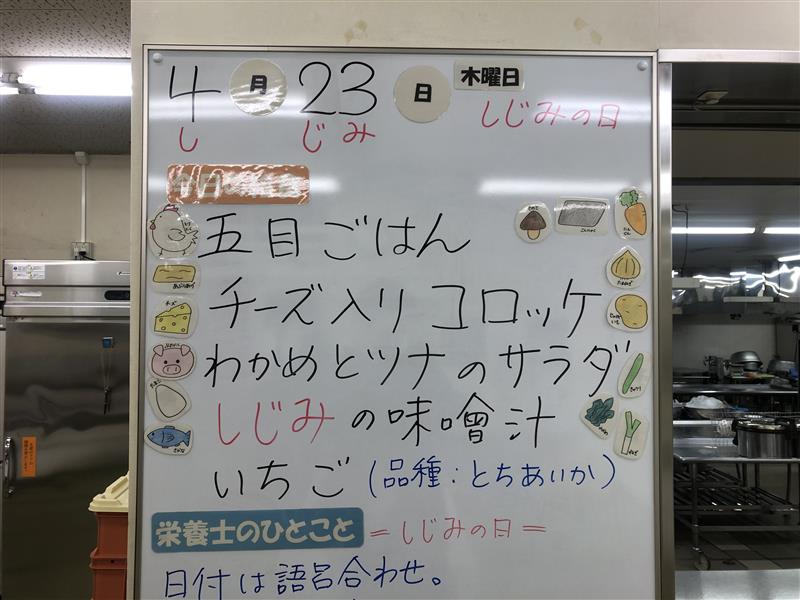 4月23日 木曜日
し じみ しじみの日
今日の給食
五目ごはん
チーズ入りコロッケ
わかめとツナのサラダ
しじみの味噌汁
いちご(品種:とちあいか)
栄養士のひとこと =しじみの日=
日付は語呂合わせ。